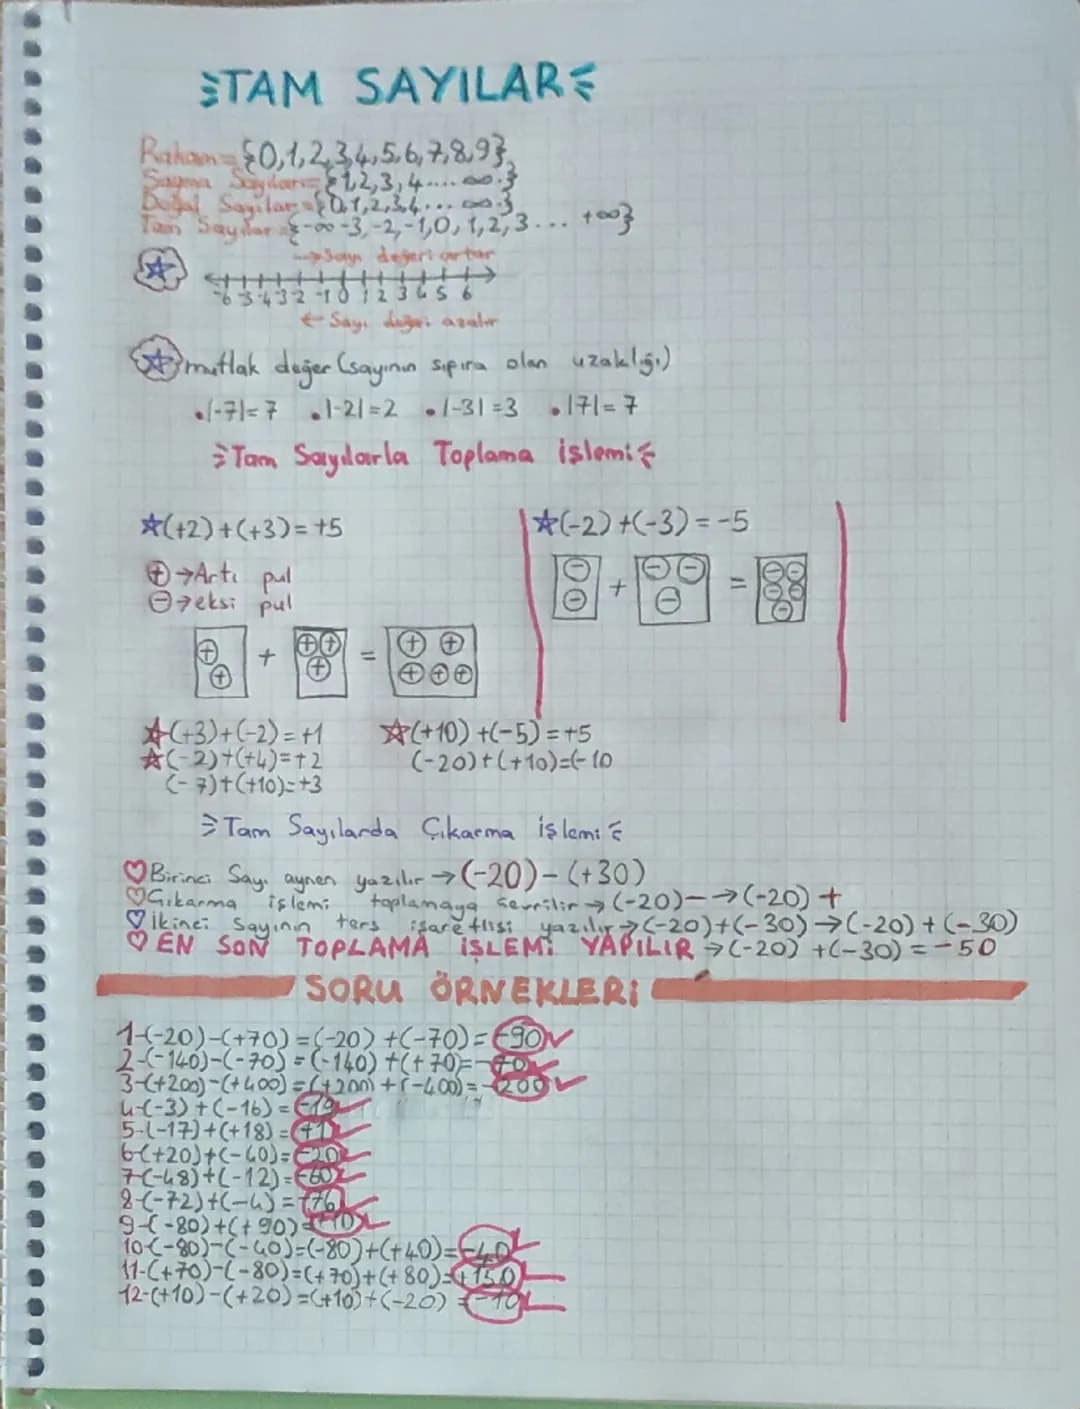 TAM SAYILAR
Rakam={0,1,2,3,4,5,6,7,8,9}
Sayma Sayıları={1,2,3,4....∞.}
Doğal Sayılar={0,1,2,3,4... ∞.}
Tam Sayılar={-∞-3,-2,-1,0,1,2,3... +∞}
→Sayı değeri artar
-6-5-4-3-2 -1 0 1 2 3 4 5 6
← Sayı değeri azalır
mutlak değer (sayının sıfıra olan uzaklığı)
•|-7|=7 •|-2|=2 •|-3|=3 •|7|=7
Tam Sayılarla Toplama işlemi
☆(+2)+(+3)=+5
☆(-2)+(-3)=-5
⊕→Artı pul
⊖→eksi pul
+ =
+ =
☆(+3)+(-2)=+1 ☆(+10)+(-5)=+5
☆(-2)+(+4)=+2 (-20)+(+10)=(-10
(-7)+(+10)=+3
Tam Sayılarda Çıkarma işlemi
♡Birinci Sayı aynen yazılır→(-20)-(+30)
♡Çıkarma işlemi toplamaya çevrilir→(-20)-→(-20)+
♡ikinci Sayının ters işaretlisi yazılır→(-20)+(-30)→(-20)+(-30)
♡EN SON TOPLAMA işLEMi YAPILIR→(-20)+(-30)=-50
SORU ÖRNEKLERi
1-(-20)-(+70)=(-20)+(-70)=-90
2-(-140)-(-70)=(-140)+(+70)=-70
3-(+200)-(+400)=(+200)+(-400)=-200
4-(-3)+(-16)=-19
5-(-17)+(+18)=+1
6-(+20)+(-40)=-20
7-(-48)+(-12)=-60
8-(-72)+(-4)=-76
9-(-80)+(+90)=+10
10-(-80)-(-40)=(-80)+(+40)=-40
11-(+70)-(-80)=(+70)+(+80)=+150
12-(+10)-(+20)=(+10)+(-20)=-10